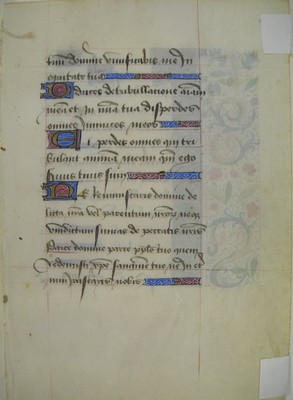 tuum domine vivificabis me In
equitate tua
Educes de tribulatione animam
meam et In mia tua disperdes
omnes Inimicos meos
Et perdes omnes qui tri
bulant animam meam qm ego
servus tuus sum
Ne Reminiscaris domine de
licta nra vel parentum nrorum neqz
vindictam sumas de peccatis nris
Parce domine parce pplo tuo quem
Redemisti xpe sanguine tuo ne In et
num Irascaris nobis